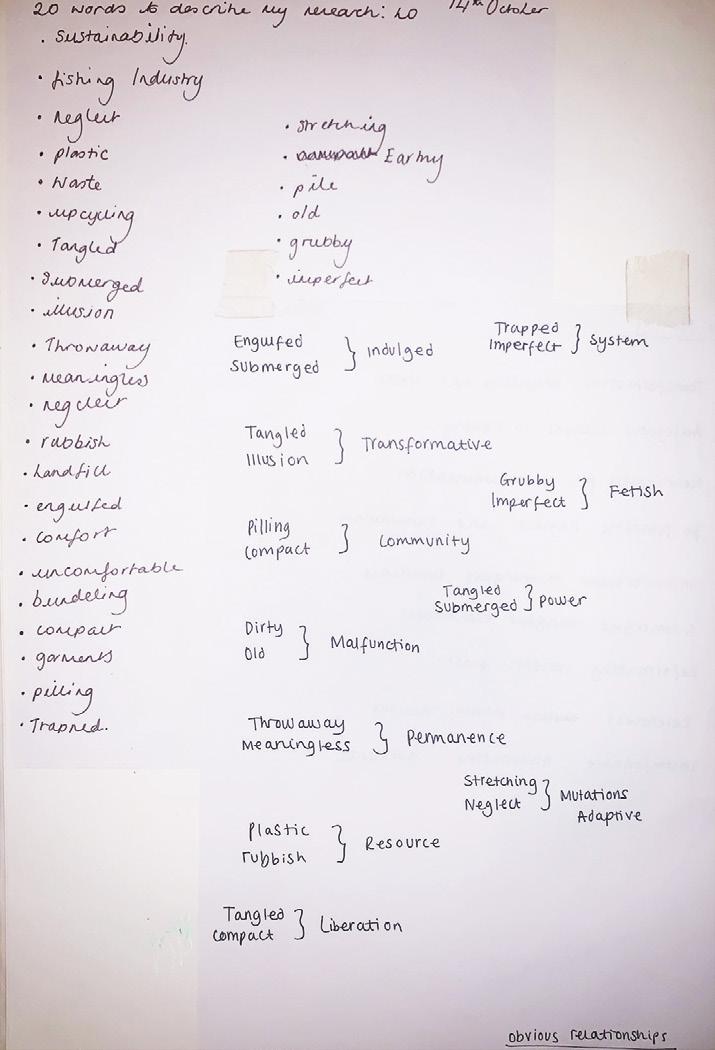 20 words to describe my research: 20 14th October
• Sustainability.
• fishing Industry
• Neglect
• plastic
• Waste
• upcycling
• Tangled
• Submerged
• illusion
• Throwaway
• Meaningless
• neglect
• rubbish
• Landfill
• engulfed
• comfort
• uncomfortable
• bundeling
• compact
• garments
• pilling
• Trapped.
• stretching
• Earthy
• pile
• old
• grubby
• imperfect
Engulfed
Submerged } Indulged
Trapped
Imperfect } System
Tangled
Illusion } Transformative
Grubby
Imperfect } Fetish
Pilling
Compact } Community
Tangled
Submerged } Power
Dirty
Old } Malfunction
Throwaway
Meaningless } Permanence
Stretching
Neglect } Mutations
Adaptive
Plastic
rubbish } Resource
Tangled
Compact } Liberation
obvious relationships